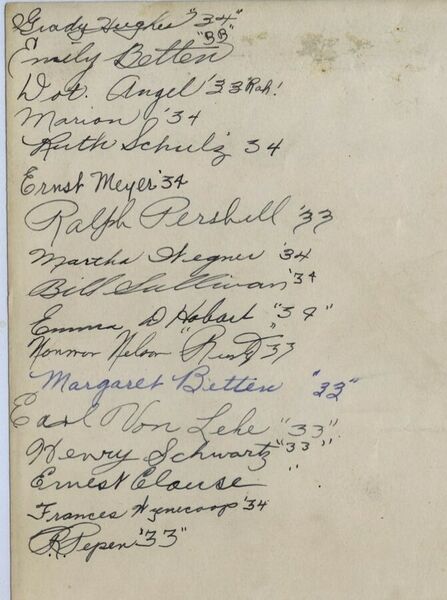 Grady Hughes "34"
"BB"
Emily Betten
Dot Angel '33 Rah!
Marion '34
Ruth Schulz 34
Ernst Meyer '34
Ralph Pershell '33
Martha Wegner '34
Bill Sullivan '34
Emma D Hobart "34"
Norman Nelson "Rusty" 33
Margaret Betten "33"
Earl Von Lehe "33"
Henry Schwartz "33"
Ernest Clause "
Frances Wynecoop '34
R. Pepen '33"